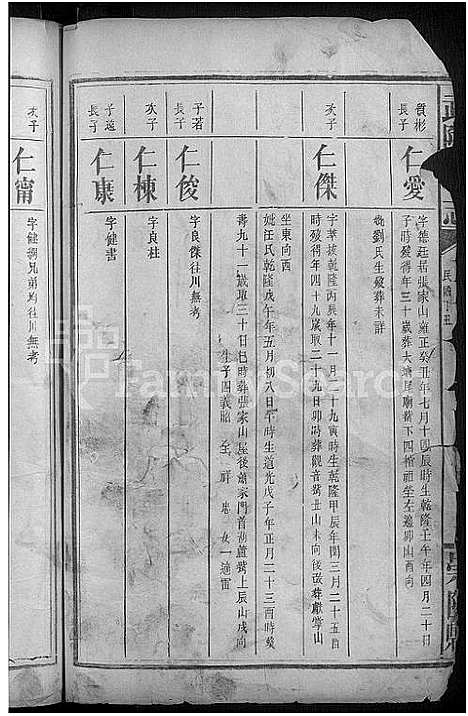 質彬
長子
仁愛
字德廷居張家山雍正癸丑年七月十四辰時生乾隆壬午年四月二十日
子時歿得年三十歲葬大塘尾廟背下四稍祖坐左邊卯山酉向
娩劉氏生歿葬未詳
次子
仁傑
字萃拔乾隆丙辰年十一月二十九寅時生乾隆甲辰年閏三月二十五酉
時歿得年四十九歲取二十九日卯時葬觀音背丑山未向後改葬獻掌山
坐東向西
妣汪氏乾隆戊午年五月初八日午時生道光戊子年正月二十三酉時歿
壽九十一歲取三十日巳時葬張家山屋後蕭家門首胡蘆背上辰山戌向
生子四義昭 女一適雷
子若
長子
仁俊
字良傑往川無考
次子
仁棟
字良柱
子遠
長子
仁康
字健書
次子
仁甯
字健綱兄弟均往川無考
FamilySearch